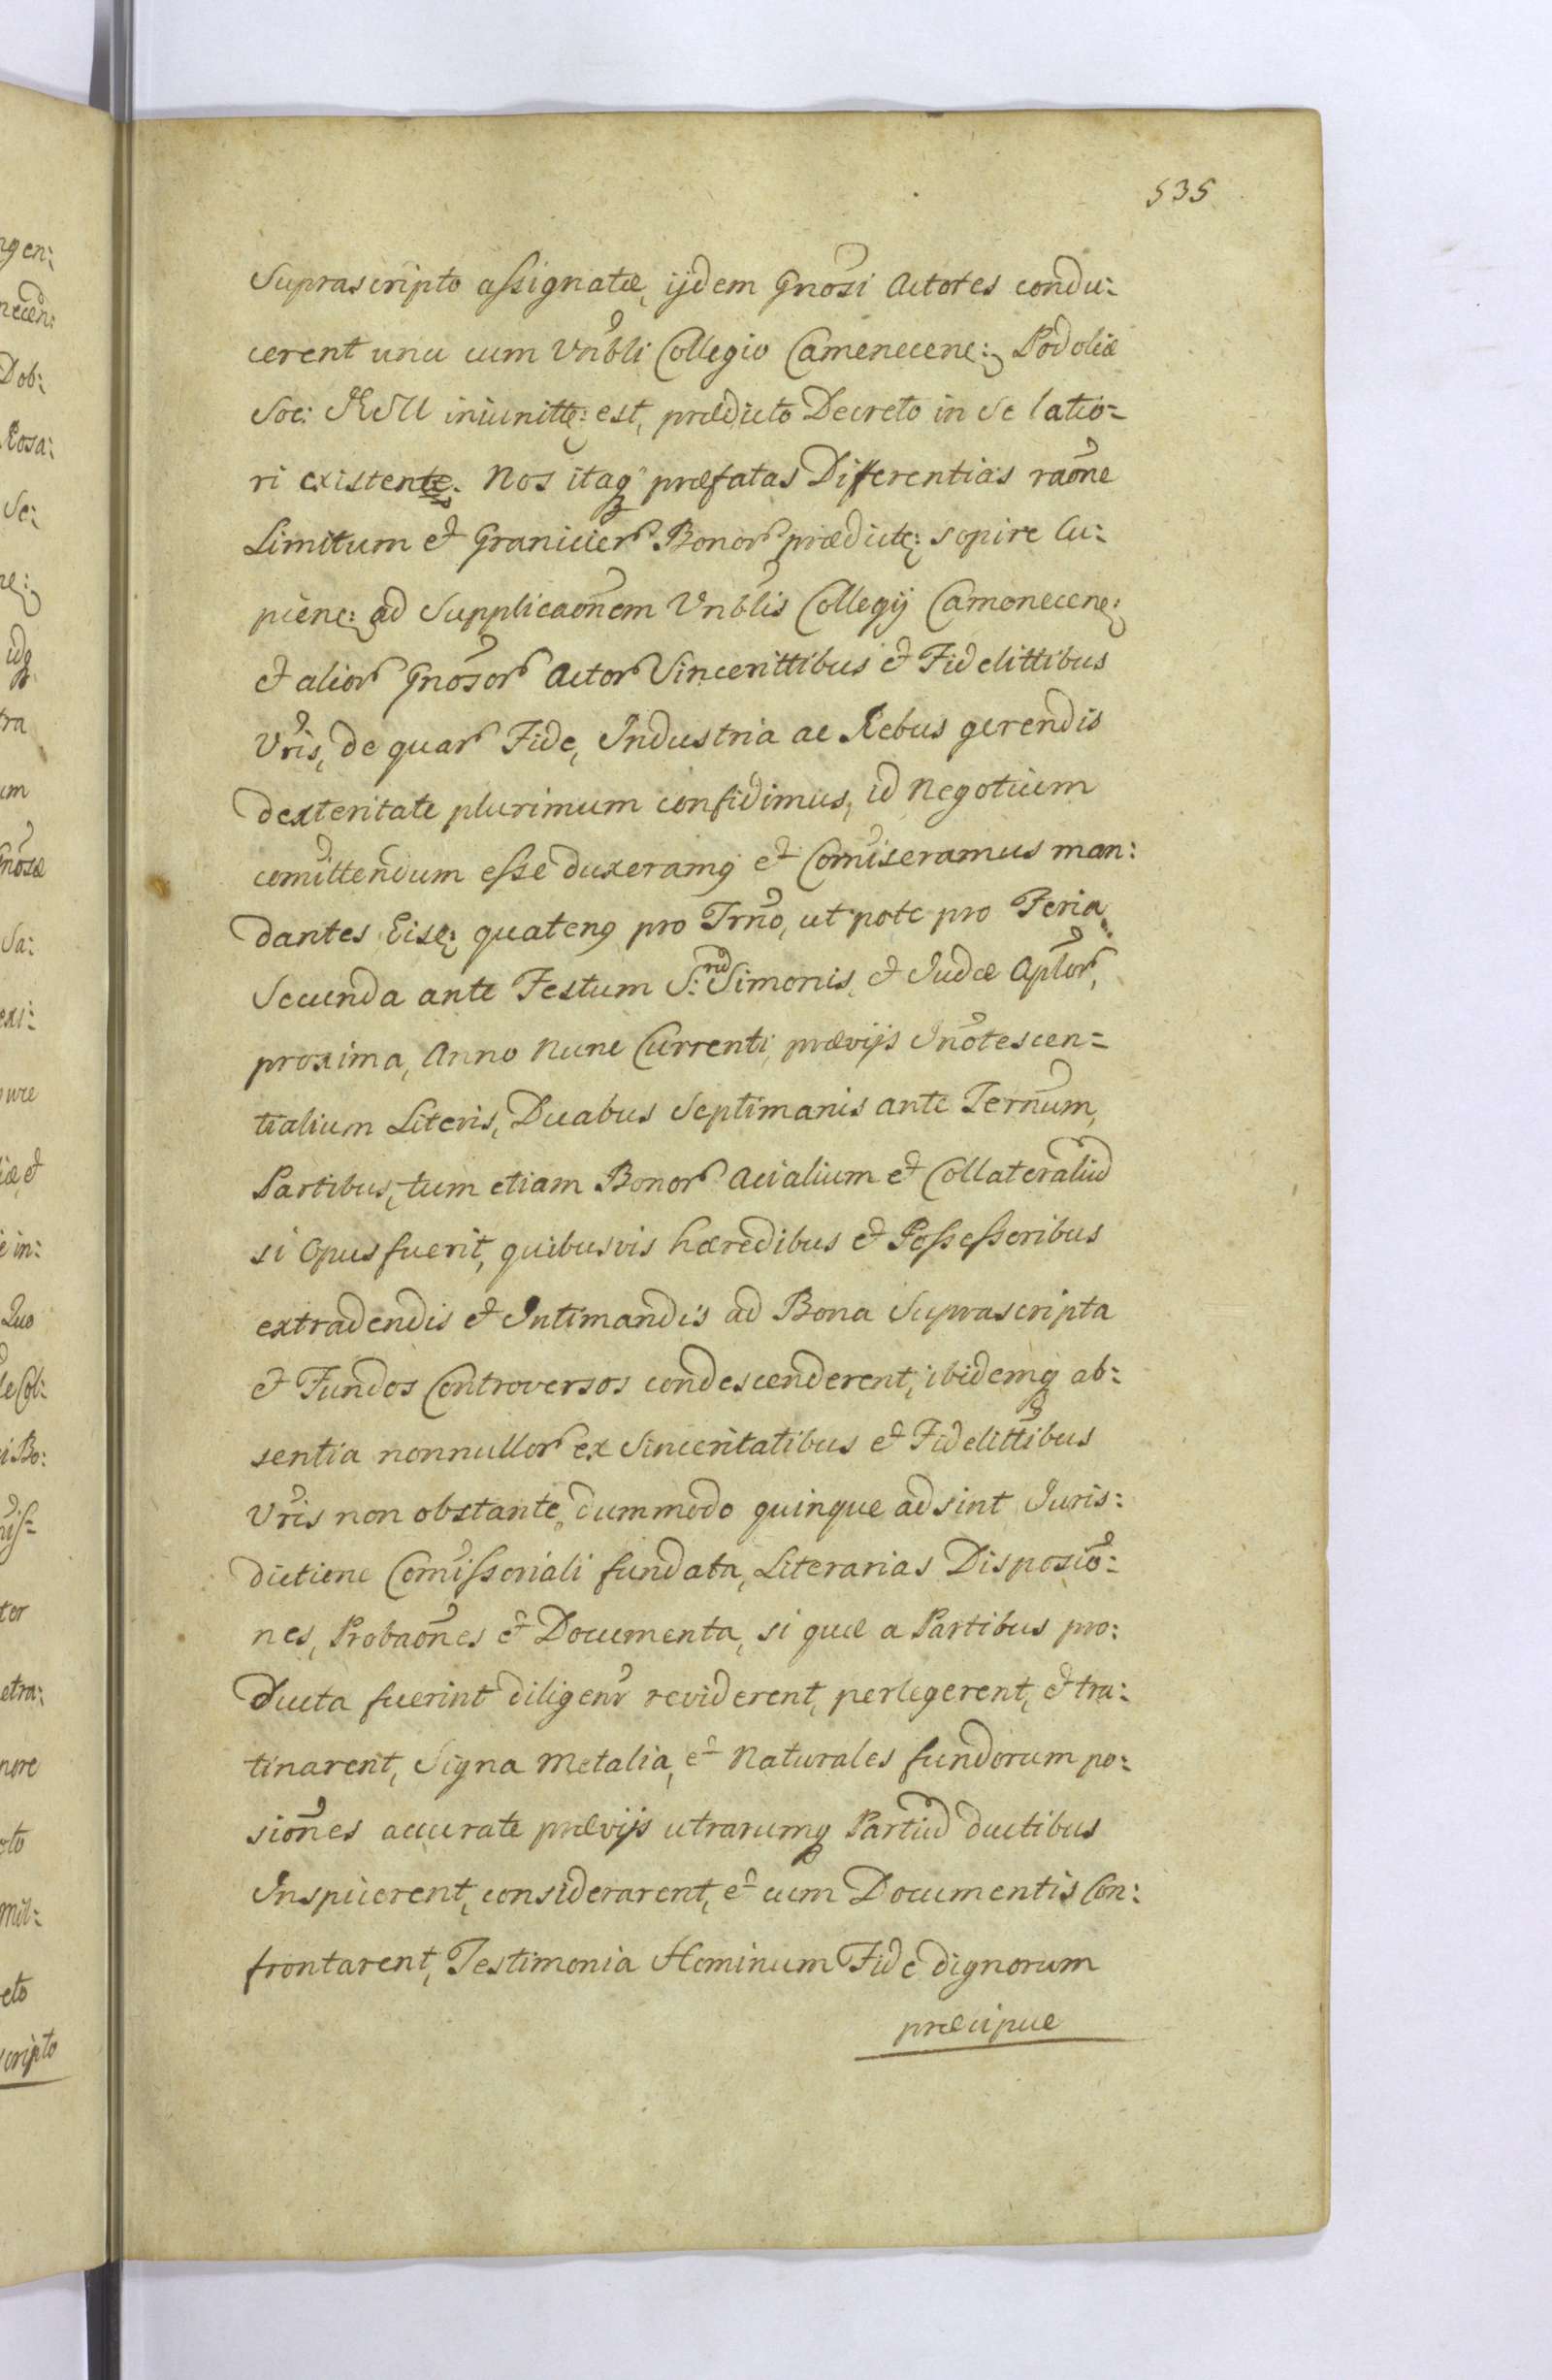 535
Suprascripto assignatæ, ijdem Gnosi Actores condu:
cerent una cum Vnbli Collegio Camenecene: Podoliæ
Soc: JESU iniunctu: est, prædicto Decreto in se latio=
ri existente. Nos itaq præfatas Differentias raone
Limitum et Granicier Bonor prædicte: sopire Cu:
piene: ad Supplicaonem Vnblis Collegij Camenecene:
et alior Gnosor Actor Sincerittibus et Fidelittibus
Vris, de quar Fide, Industria ac Rebus gerendis
dexteritate plurimum confidimus, id Negotium
comittendum esse duxeramq et Comiseramus man:
dantes Eise: quatenq pro Trno, ut pote pro Feria
Secunda ante Festum S: rud Simonis et Judæ Aplor,
proxima, Anno Nunc Currenti, prævijs Inotescen=
tialium Literis, Duabus Septimanis ante Ternum,
Partibus, tum etiam Bonor Acialium et Collateraliu
si Opus fuerit, quibusvis hæredibus et Possessoribus
extradendis et Intimandis ad Bona Suprascripta
et Fundos Controversos condescenderent, ibidemq ab:
sentia nonnullor ex Sinceritatibus et Fidelittibus
Vris non obstante, dummodo quinque adsint Juris:
dictione Comissoriali fundata, Literarias Disposio:
nes, Probaones et Documenta, si quæ a Partibus pro:
ducta fuerint diligenr reviderent, perlegerent, et tru:
tinarent, Signa Metalia, et Naturales fundorum po:
siones accurate prævijs utrarumq Partiu ductibus
Inspicerent, considerarent, et cum Documentis Con:
frontarent, Testimonia Hominum Fide dignorum
præcipue